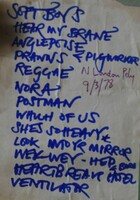 SOFT BOYS
HEAR MY BRANE
ANGLEPOISE
PRAWNS & PIGWORKER
REGGAE
N London Poly
9/3/78
NORA
POSTMAN
WHICH OF US
SHES SO HEAVY
LOOK INTO YR MIRROR
WEY-WEY-HEP
HEARTBREAK HOTEL
VENTILATOR